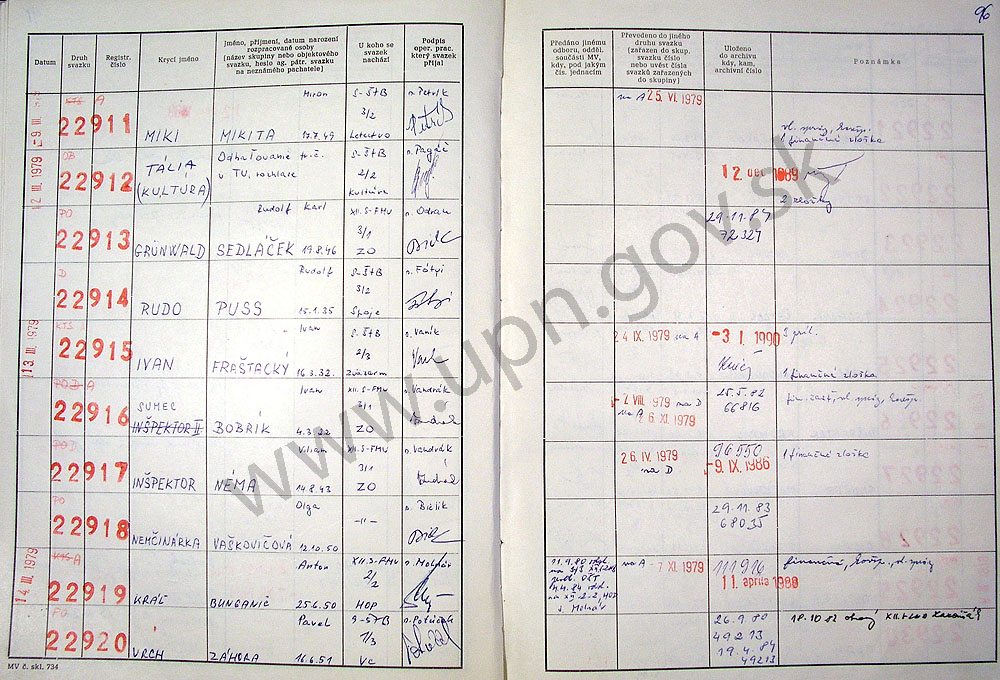 96
Datum
Druh svazku
Registr. číslo
Krycí jméno
Jméno, příjmení, datum narození
rozpracované osoby
(název skupiny nebo objektového
svazku, heslo ag. pátr. svazku
na neznámého pachatele)
U koho se
svazek
nachází
Podpis
oper. prac.
který svazek
přijal
Předáno jinému
odboru, odděl.
součásti MV,
kdy, pod jakým
čís. jednacím
Převedeno do jiného
druhu svazku
(zařazen do skup.
svazku číslo
nebo uvést čísla
svazků zařazených
do skupiny)
Uloženo
do archivu
kdy, kam,
archivní číslo
Poznámka
KTS A Miron S-ŠTB n. Petrík na A 25. VI. 1979
-9. III. 22911 MIKI MIKITA 17.7.49 3/2 Letectvo
1 finančná zložka
12 III. 1979 OB 22912 TÁLIA (KULTÚRA) Odhaľovanie v TV, rozhlase S-ŠTB 2/2 Kultúra n. Pagáč 12 dec 1989
2 zložky
PO 22913 GRÜNWALD Rudolf Karl SEDLÁČEK 19.8.46 XII. S-FMV 3/1 ZO n. Odran 29.11.84 72327
D 22914 RUDO Rudolf PUSS 15.1.35 S-ŠTB 3/2 Spoje
13 III. 1979 KTS 22915 IVAN Ivan FRAŠTACKÝ 16.3.32. S-ŠTB 2/3 Zväzarm n. Vaník 24 IX. 1979 na A -3 I. 1990 3 príl.
1 finančná zložka
A 22916 SUMEC INŠPEKTOR II. Ivan BOBRÍK 4.3.22 XII. S-FMV 3/1 ZO n. Vandrák -2 VIII. 1979 na D na A 6. XI. 1979 25.5.82 66816
22917 INŠPEKTOR Viliam NÉMA 14.8.43 XII. S-FMV 3/1 ZO n. Vandrák 26. IV. 1979 na D 96550 -9. IX. 1986 1 finančná zložka
PO 22918 NEMČINÁRKA Olga VAŠKOVIČOVÁ 12.10.50 -II- n. Bielik 29.11.83 68035
14 III. 1979 KTS A 22919 KRÁĽ Anton BUNGANIČ 25.6.50 XII. S-FMV 2/2 HOP n. Molnár na A -7 XI. 1979 111916 11 apríla 1988
s. Molnár
PO 22920 VRCH Pavel ZÁHORA 16.6.51 S-ŠTB 1/3 Vc 26.9.80 49213 19.4.84 49213 18.10.82
MV č. skl. 734
www.upn.gov.sk